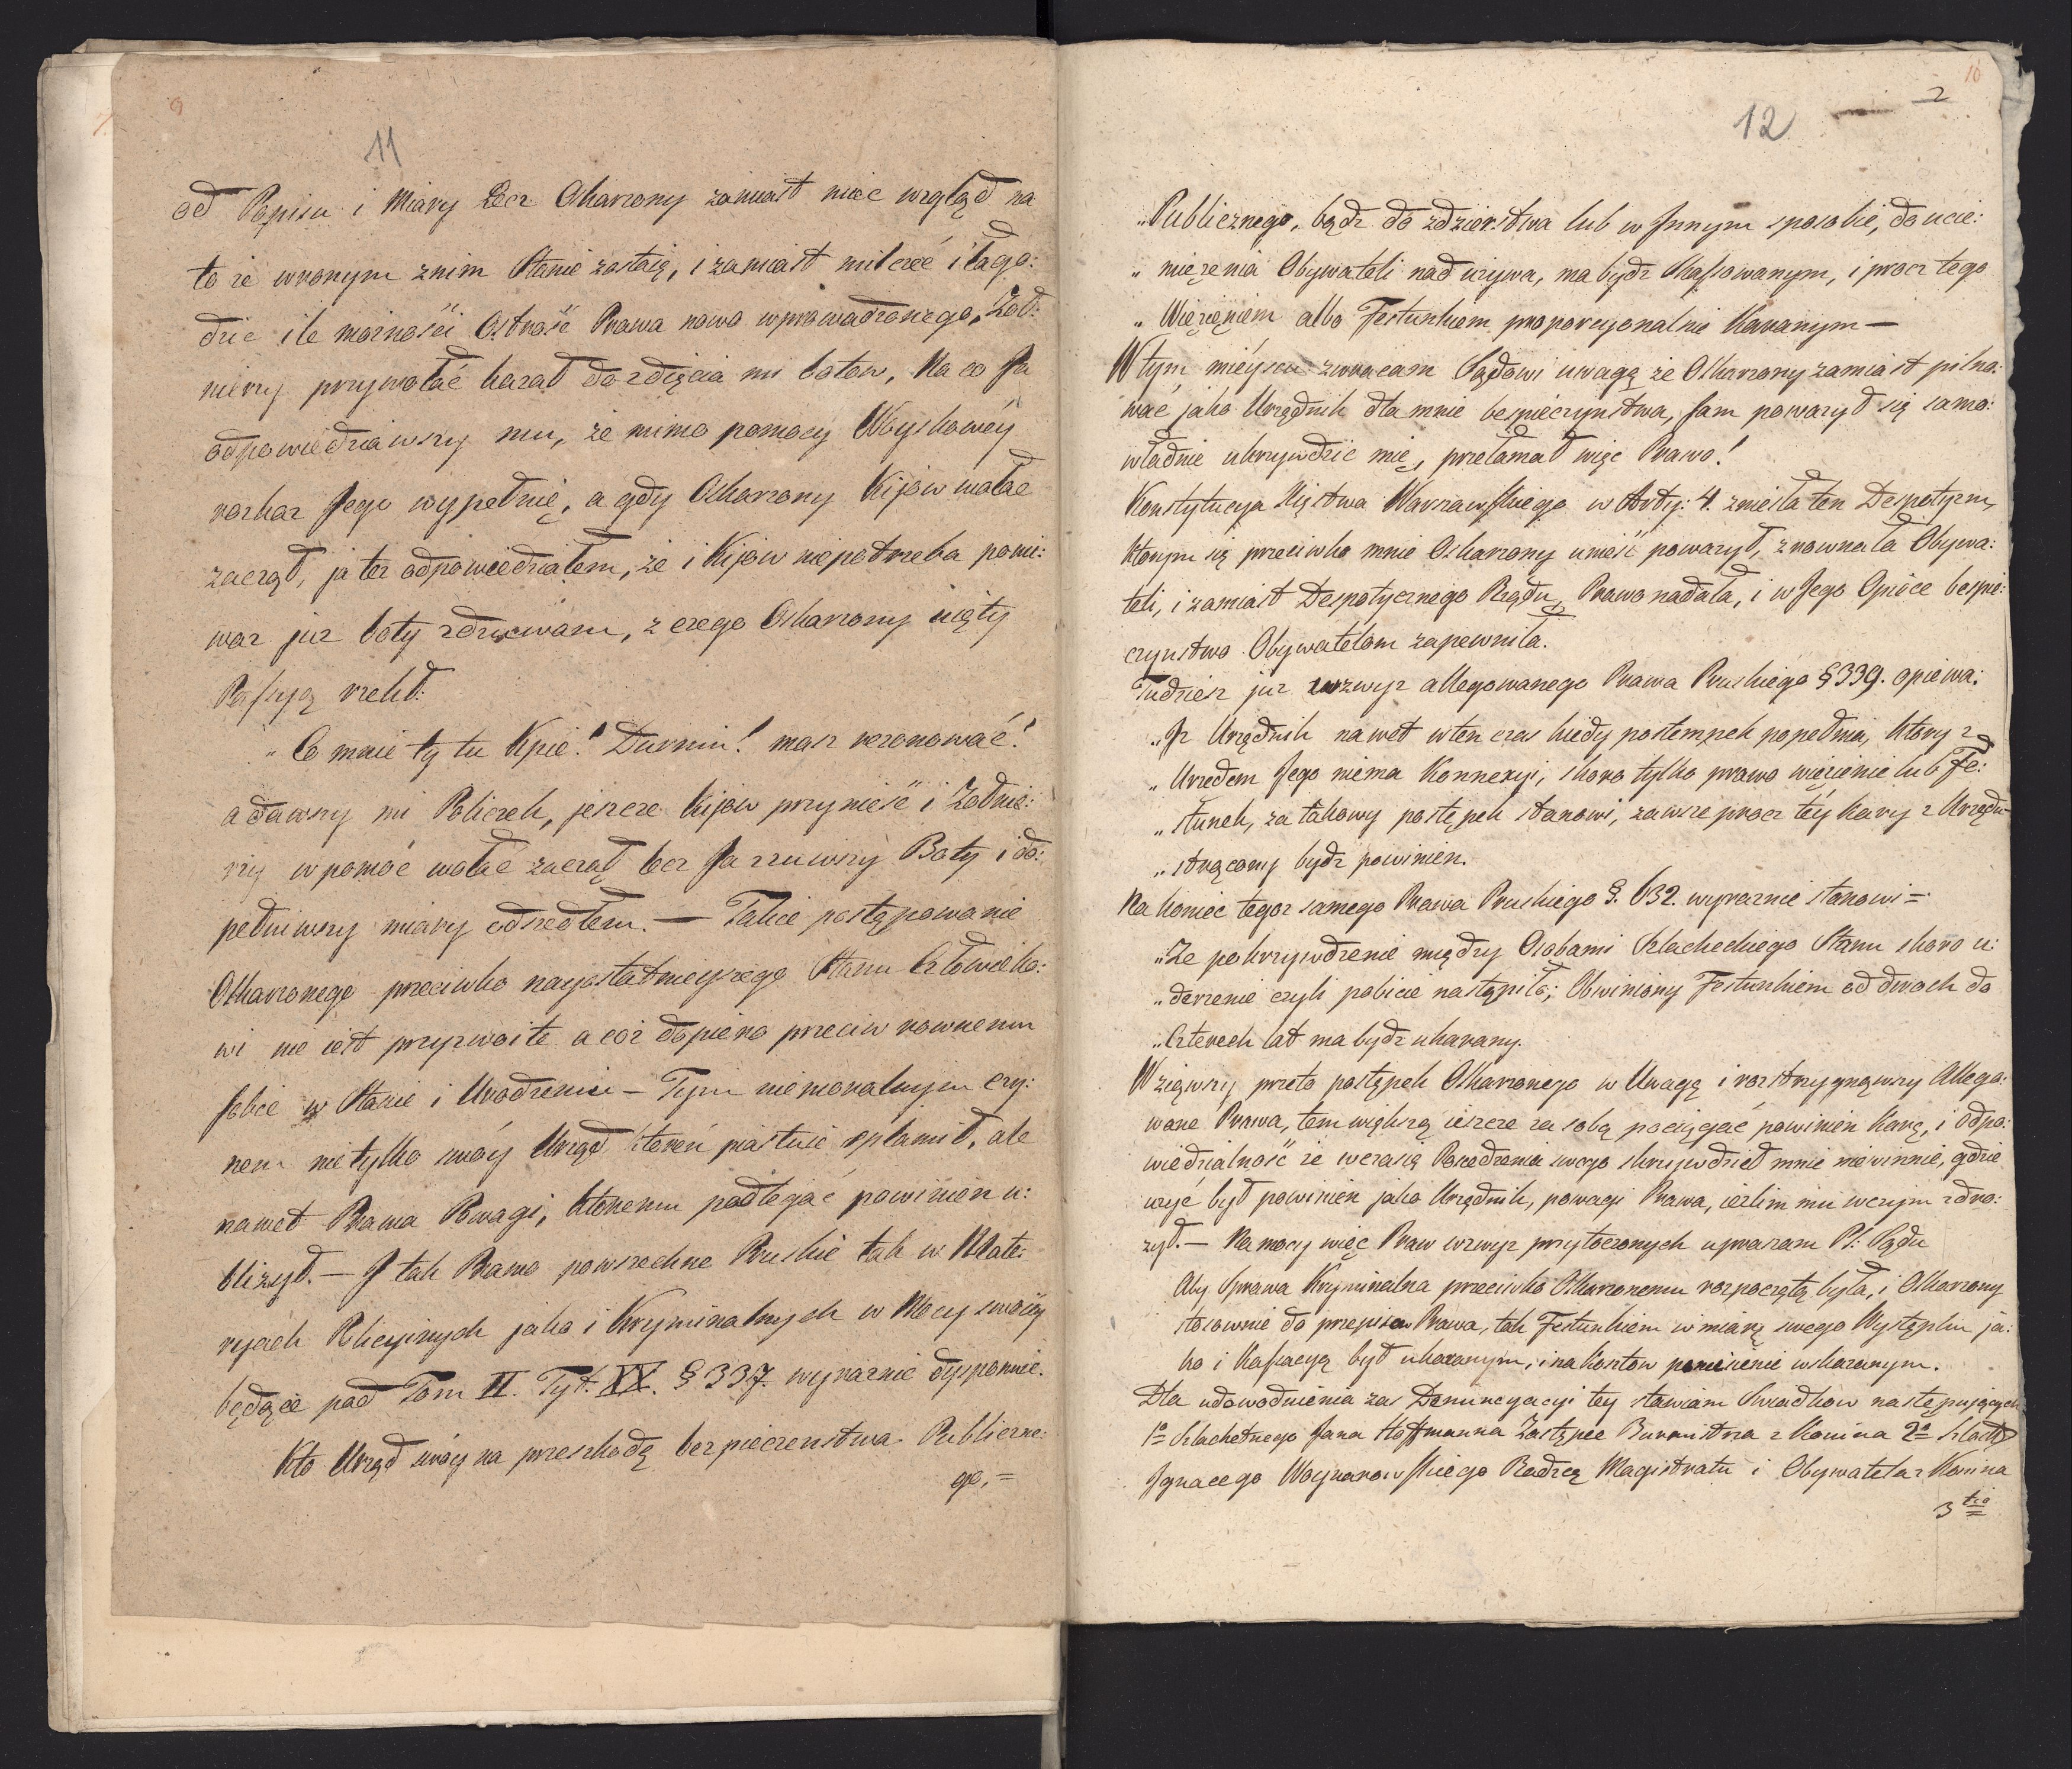 9
11
od Popisu i Miary Lecz Oskarzony zamiast mieć wzgląd na
to że wronym znim Stanie zostaię, i zamiast milczeć i łago:
dzić ile możności Ostrość Prawa nowo wprowadzonego, Żoł:
nierzy przywołać kazał do zdięcia mi botow, Na co Ja
odpowiedziawszy mu, że mimo pomocy Woyskowéy
rozkaz Jego wypełnię, a gdy Oskarzony Kijow wołać
zaczął, ja też odpowiedziałem, że i Kijow niepotrzeba ponie:
waz już boty zdzięwam, z czego Oskarzony uięty
Passyą rzekł:
„Co mnie ty tu Kpie! Durniu! masz rezonować!
a dawszy mi Policzek, jeszcze kijow przynieść i Żołnie:
rzy w pomoć wołać zaczął lecz Ja zzuwszy Boty i do:
pełniwszy miary odszedłem. — Takie postępowanie
Oskarzonego przeciwko nayostatnieyszego Stanu Człowieko:
wi nie iest przyzwoite a coż dopiero przeciw rownemu
sobie w Stanie i Urodzeniu — Tym niemoralnym czy:
nem nietylko swóy Urząd ktoren piastuie splamił, ale
nawet Prawa Powagi, ktoremu podlegać powinien u:
bliżył. — I tak Prawo powszechne Pruskie tak w Mate:
ryjach Policyinych jako i Kryminalnych w Mocy swoiey
będące pod Tom II. Tyt. XX. § 337. wyraznie dysponuie.
Kto Urząd swóy na przeszkodę bezpieczenstwa Publiczne:
go, =
10
2
12
„Publicznego, bądz do zdzierstwa lub w Innym sposobie, do ucie:
„mięzenia Obywateli nad używa, ma bydz Kassowanym, i procz tego
„Więzięniem albo Festunkiem proporcyonalnie Karanym —
W tym mieyscu zwracam Sądowi uwagę że Oskarzony zamiast pilno:
wać jako Urzędnik dla mnie bespieczynstwa, sam poważył się samo:
władnie ukrzywdzić mię, przełamał więc Prawo!
Konstytucyja Xięstwa Warszawskiego w Arty: 4. zniesła ten Despotyzm,
ktorym się przeciwko mnie Oskarzony unieść poważył, zrownała Obywa:
teli, i zamiast Despotycznego Rządu, Prawo nadała, i w Jego Opiéce bespie:
czynstwo Obywatelom zapewniła.
Tudzież już wzwyz allegowanego Prawa Pruskiego § 339. opiewa:
„Iz Urzędnik nawet wten czas kiedy postempek popełnia, ktory z
„Urzedem Jego niema Konnexyi, skoro tylko prawo więzienie lub Fe:
„stunek, za takowy postępek stanowi, zawsze procz téy kary z Urzędu
„strącony bydz powinien.
Na koniec tegoz samego Prawa Pruskiego §. 632. wyraznie stanowi =
„Ze pokrzywdzenie między Osobami Szlacheckiego Stanu skoro u:
„derzenie czyli pobicie nastąpiło; Obwiniony Festunkiem od dwoch do
„Czterech lat ma bydz ukarany.
Wziąwszy przeto postępek Oskarzonego w Uwagę i rozstrzygnąwszy Allego:
wane Prawa, tem większą ieszcze za sobą pociągać powinien Karę, i odpo:
wiedzialność że wczasię Posiedzenia swego skrzywdził mnie niewinnie, gdzie
użyć był powinien jako Urzędnik, powagi Prawa, ieżlim mu wczym zdro:
żył. — Na mocy więc Praw wzwyz przytoczonych upraszam P. Sądu
Aby Sprawa Kryminalna przeciwko Oskarzonemu rozpoczętą była, i Oskarzony
stosownie do przepisu Prawa, tak Festunkiem w miarę swego Występku ja:
ko i Kassacyą był ukaranym, i na Kosztow poniesienie wskazanym.
Dla udowodnienia zas Denuncyacyi tey stawiam Swiadkow następujących
1o Szlachetnego Jana Hoffmanna Zastępce Burmistrza z Konina 2o Szlach
Ignacego Woynarowskiego Radzcę Magistratu i Obywatela z Konina
3tio